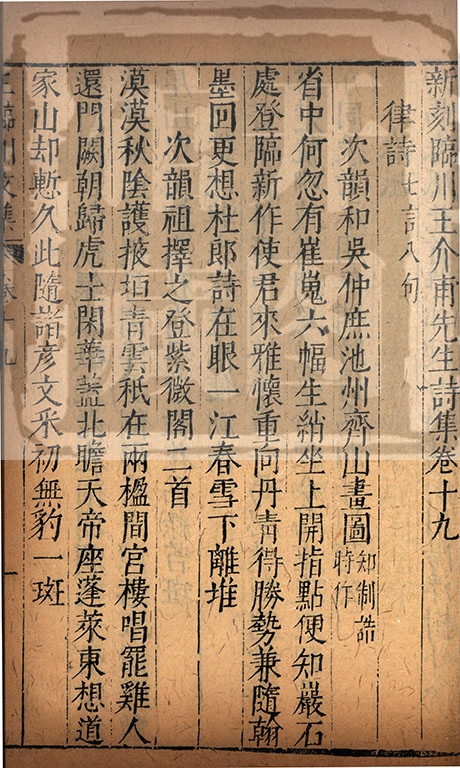 新刻臨川王介甫先生詩集卷十九
律詩七言八句
次韻和吳仲庶池州齊山畫圖知制誥時作
省中何忽有崔嵬六幅生綃坐上開指點便知巖石
處登臨新作使君來雅懷重向丹青得勝勢兼隨翰
墨回更想杜郎詩在眼一江春雪下離堆
次韻祖擇之登紫微閣二首
漠漠秋陰護掖垣青雲秪在兩楹間宮樓唱罷雞人
還門闕朝歸虎士閑華蓋北瞻天帝座蓬萊東想道
家山却慙久此隨諧彥文采初無豹一斑
王臨川文集 卷十九 一